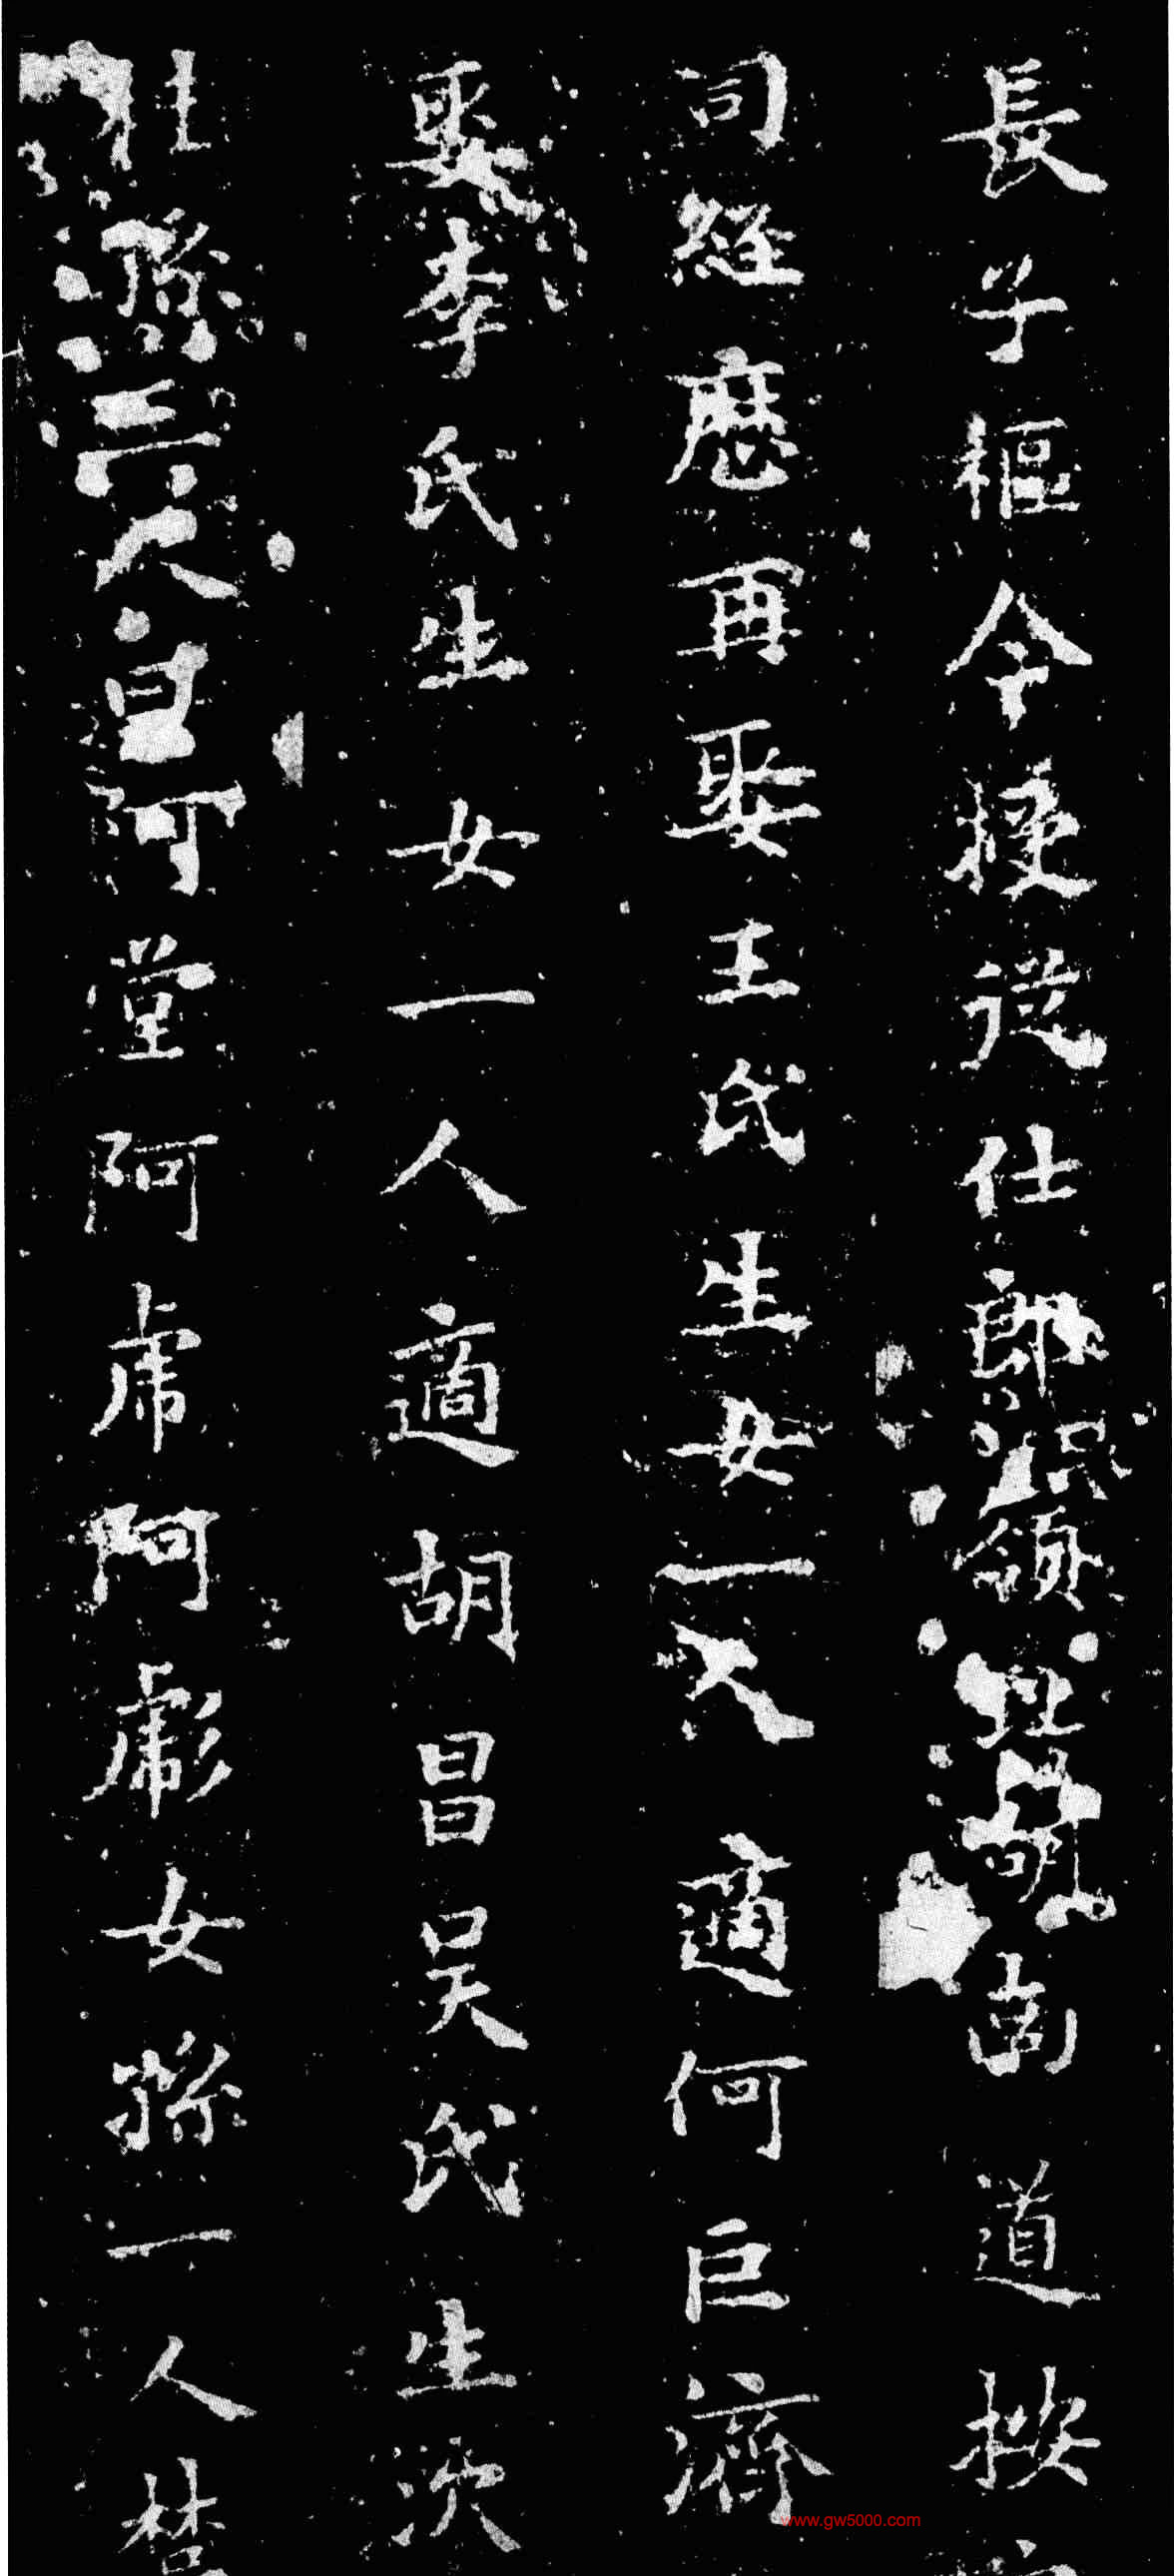 長子樞今授從仕郎嶺北湖南道按
司經歷再娶王氏生女一人適何巨濟
娶李氏生女一人適胡昌吳氏生次
孫六人曰阿堂阿虎阿彪女孫一人
www.gw5000.com